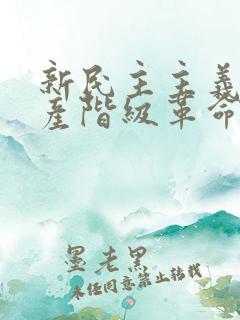 新民主主義
產階級革命
墨老黑
未经同意禁止转载